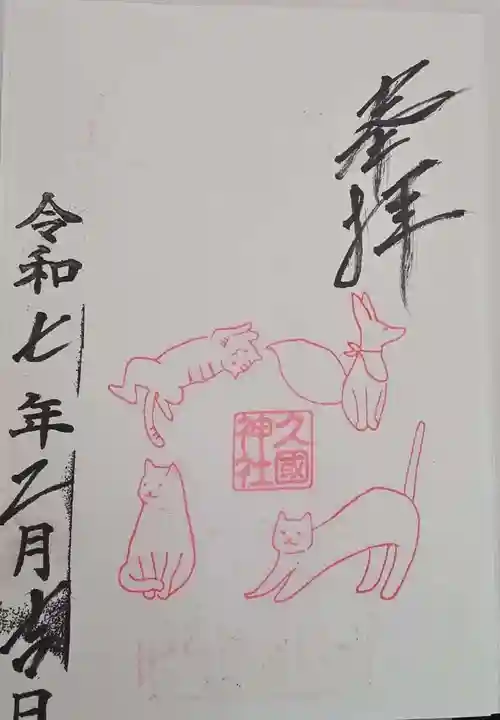 奉拝
久國
神社
令和七年二月
日